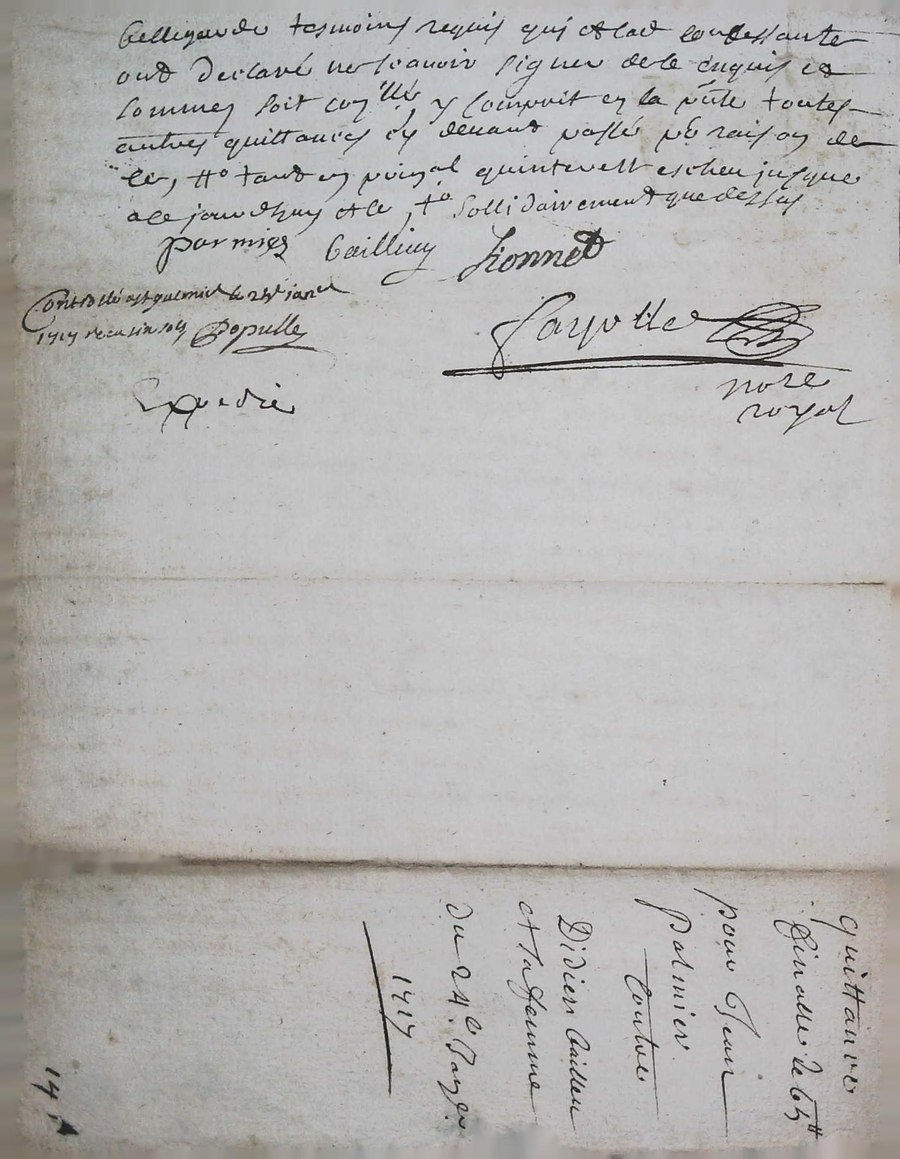 Bellegarde tesmoins requis qui et lad
ont declaré ne scavoir signer de ce enquis et
sommes soit y comprit en la pnte toutes
autres quittances cy devand passé pr raison de
ce, tt° tand en quinterest escheu jusque
a ce jourdhuy et le sollidairement que dessus
parmier Caillieu Lionnet
Controllé a le 28e janer
1717 Repcu six sols Populle
Fayolle
Expedié
nore
royal
quittance
finalle de 65tt
pour Jean
Palmier
Contre
Didier Caillieu
et sa femme
du 24e Janer
1717
14